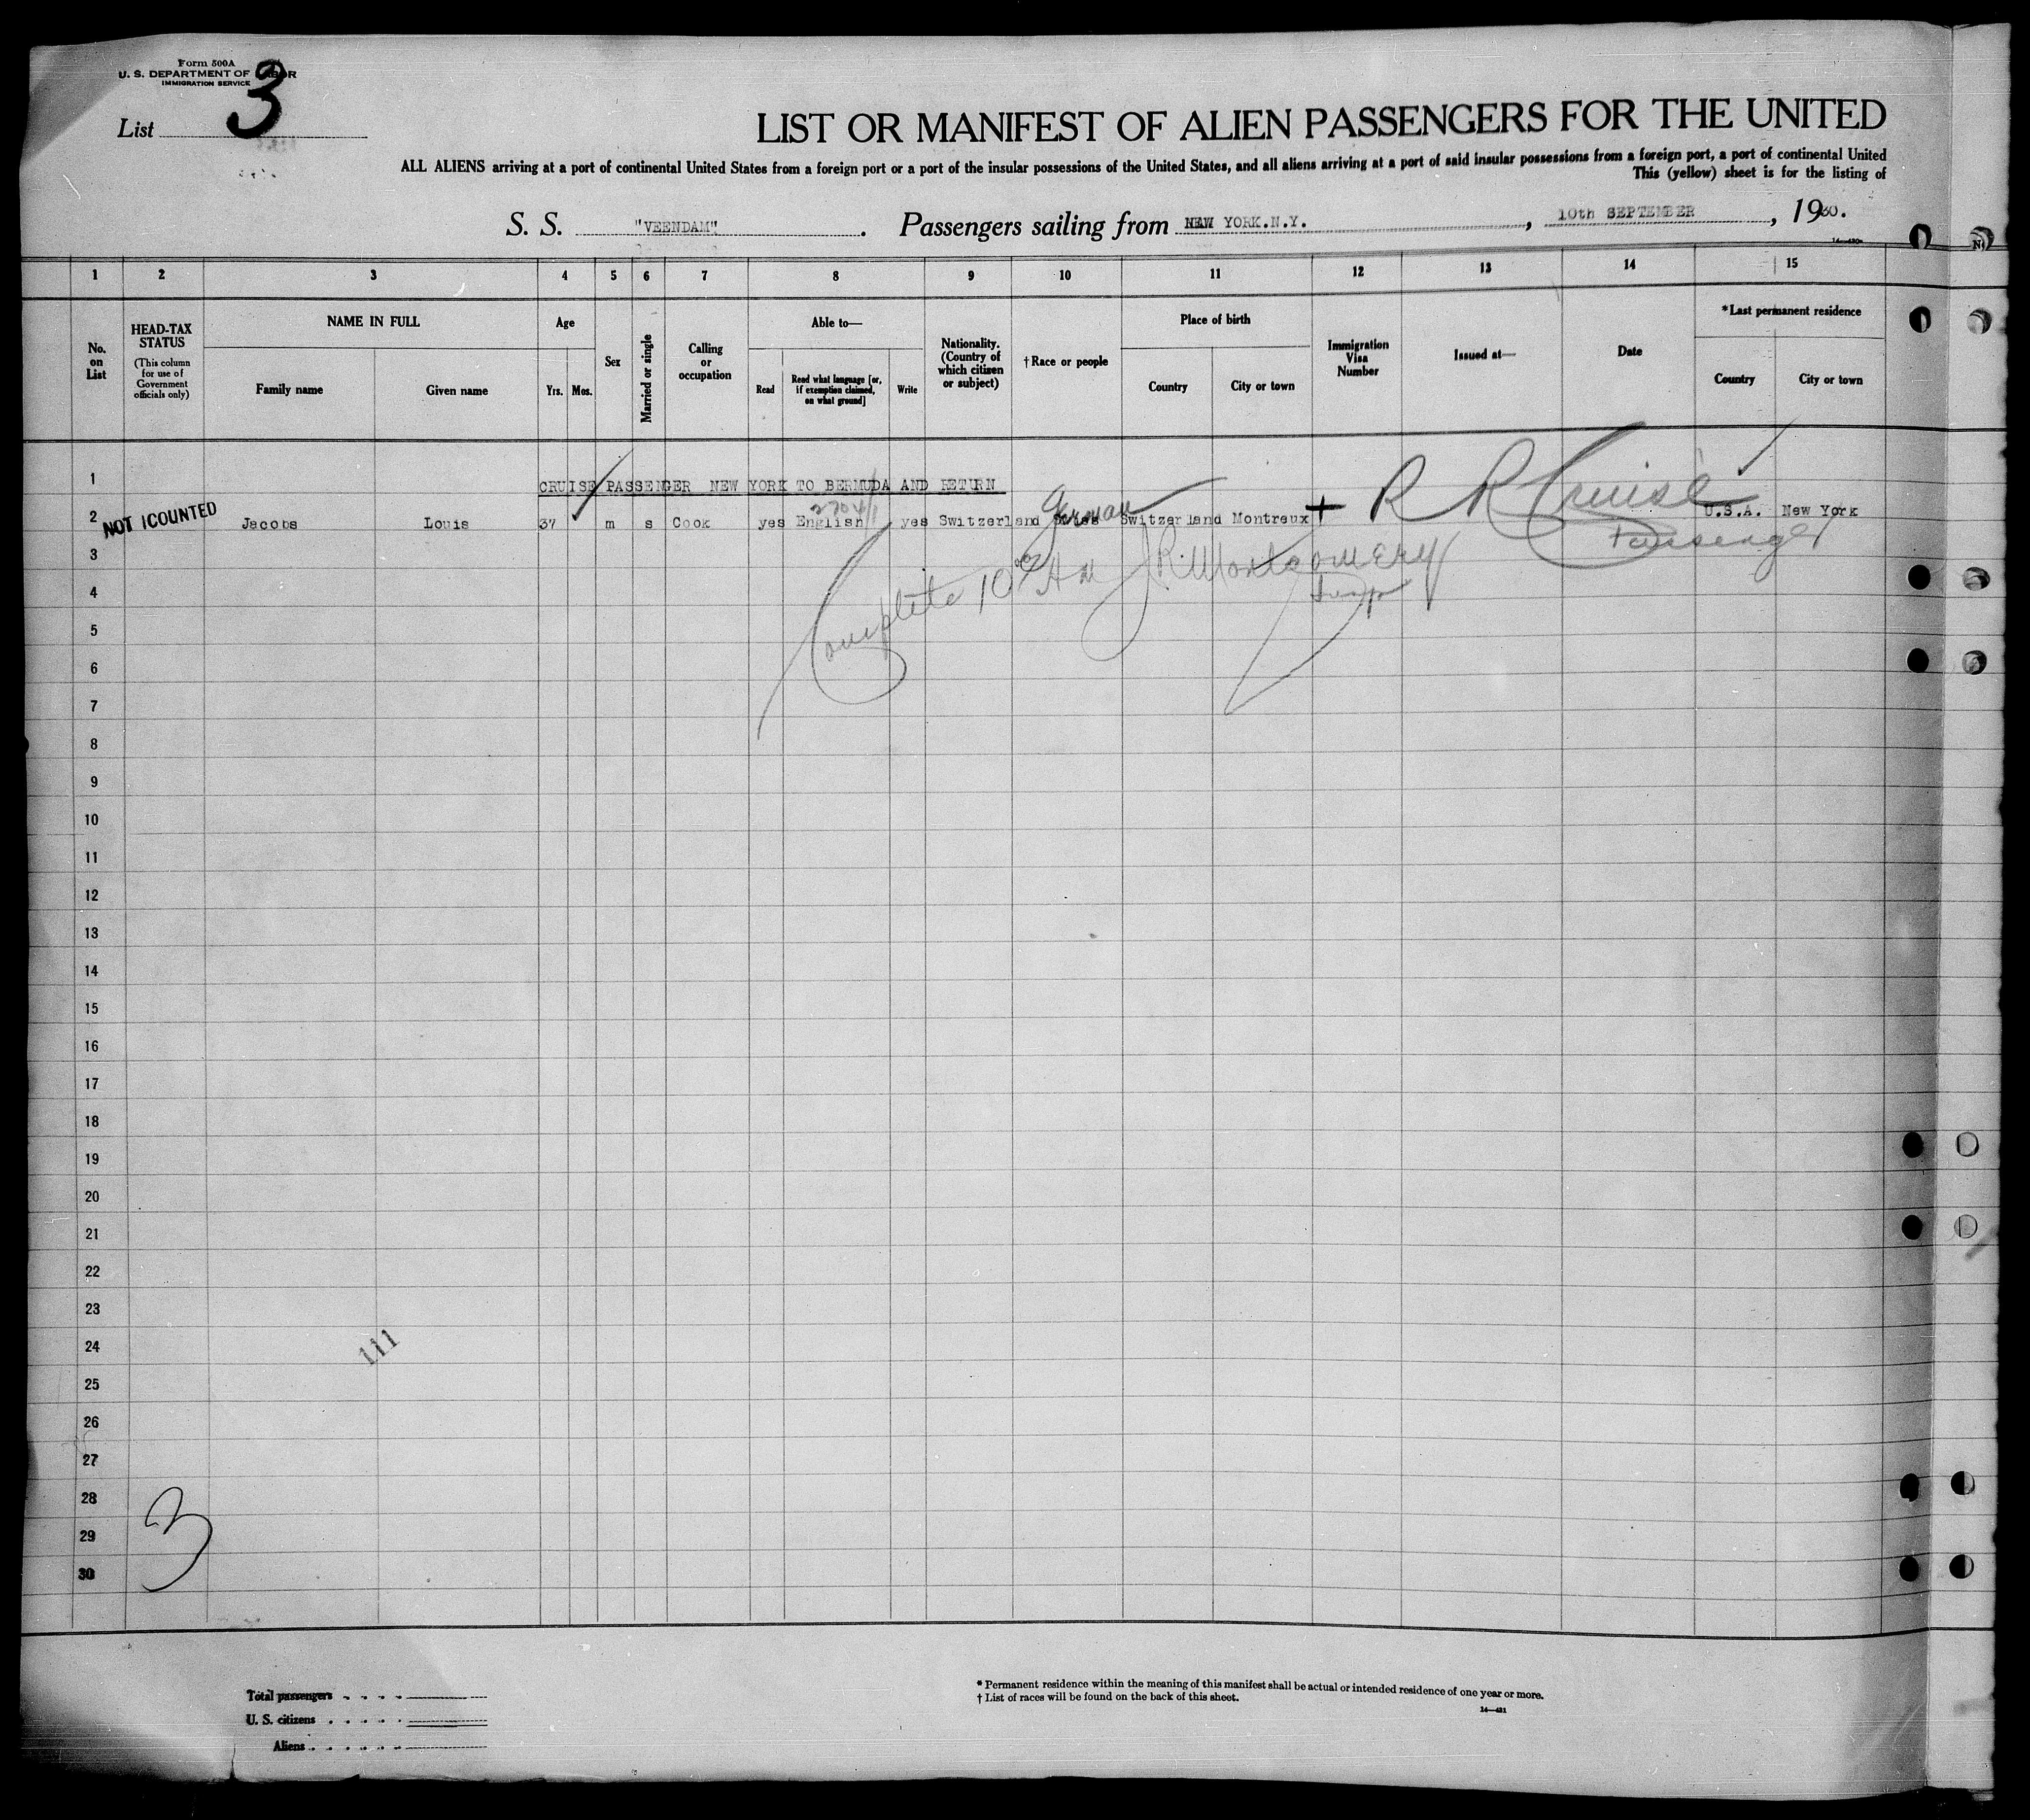 Form 500A
U. S. DEPARTMENT OF LABOR
IMMIGRATION SERVICE
List 3
LIST OR MANIFEST OF ALIEN PASSENGERS FOR THE UNITED
ALL ALIENS arriving at a port of continental United States from a foreign port or a port of the insular possessions of the United States, and all aliens arriving at a port of said insular possessions from a foreign port, a port of continental United
This (yellow) sheet is for the listing of
S. S. "VEENDAM". Passengers sailing from NEW YORK.N.Y., 10th SEPTEMBER, 1930.
1 2 3 4 5 6 7 8 9 10 11 12 13 14 15
No. on List
HEAD-TAX STATUS
(This column for use of Government officials only)
NAME IN FULL
Family name
Given name
Age
Yrs. Mos.
Sex
Married or single
Calling or occupation
Able to—
Read
Read what language [or, if exemption claimed, on what ground]
Write
Nationality. (Country of which citizen or subject)
†Race or people
Place of birth
Country
City or town
Immigration Visa Number
Issued at—
Date
*Last permanent residence
Country
City or town
1 CRUISE PASSENGER NEW YORK TO BERMUDA AND RETURN
2 NOT COUNTED Jacobs Louis 37 m s Cook yes English yes Switzerland German Switzerland Montreux R R Cruise U.S.A. New York
Passenger
3 Complete 10 AM J R Montgomery
4 Insp
5
6
7
8
9
10
11
12
13
14
15
16
17
18
19
20
21
22
23
24 111
25
26
27
28
29 3
30
Total passengers
U. S. citizens
Aliens
* Permanent residence within the meaning of this manifest shall be actual or intended residence of one year or more.
† List of races will be found on the back of this sheet.